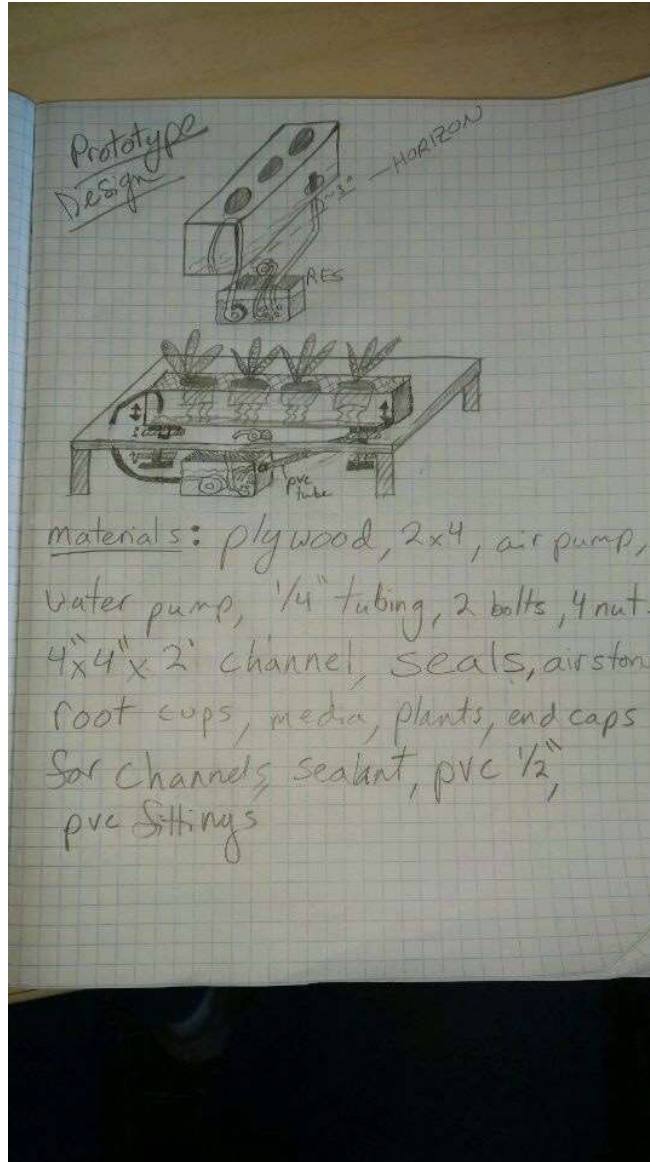 Prototype
Design
~3° — HORIZON
RES
pvc
tube
materials: plywood, 2x4, air pump,
water pump, 1/4" tubing, 2 bolts, 4 nut
4"x4"x 2' channel, seals, airston
root cups, media, plants, end caps
for channels, sealant, pvc 1/2",
pvc fittings